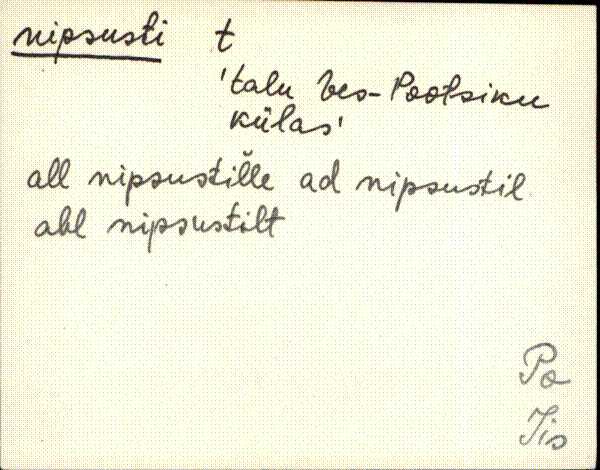 nipsusti t
'talu Ves-Pootsiku
külas'
all nipsustil̆le ad nipsustil
abl nipsustilt
Po
Jis